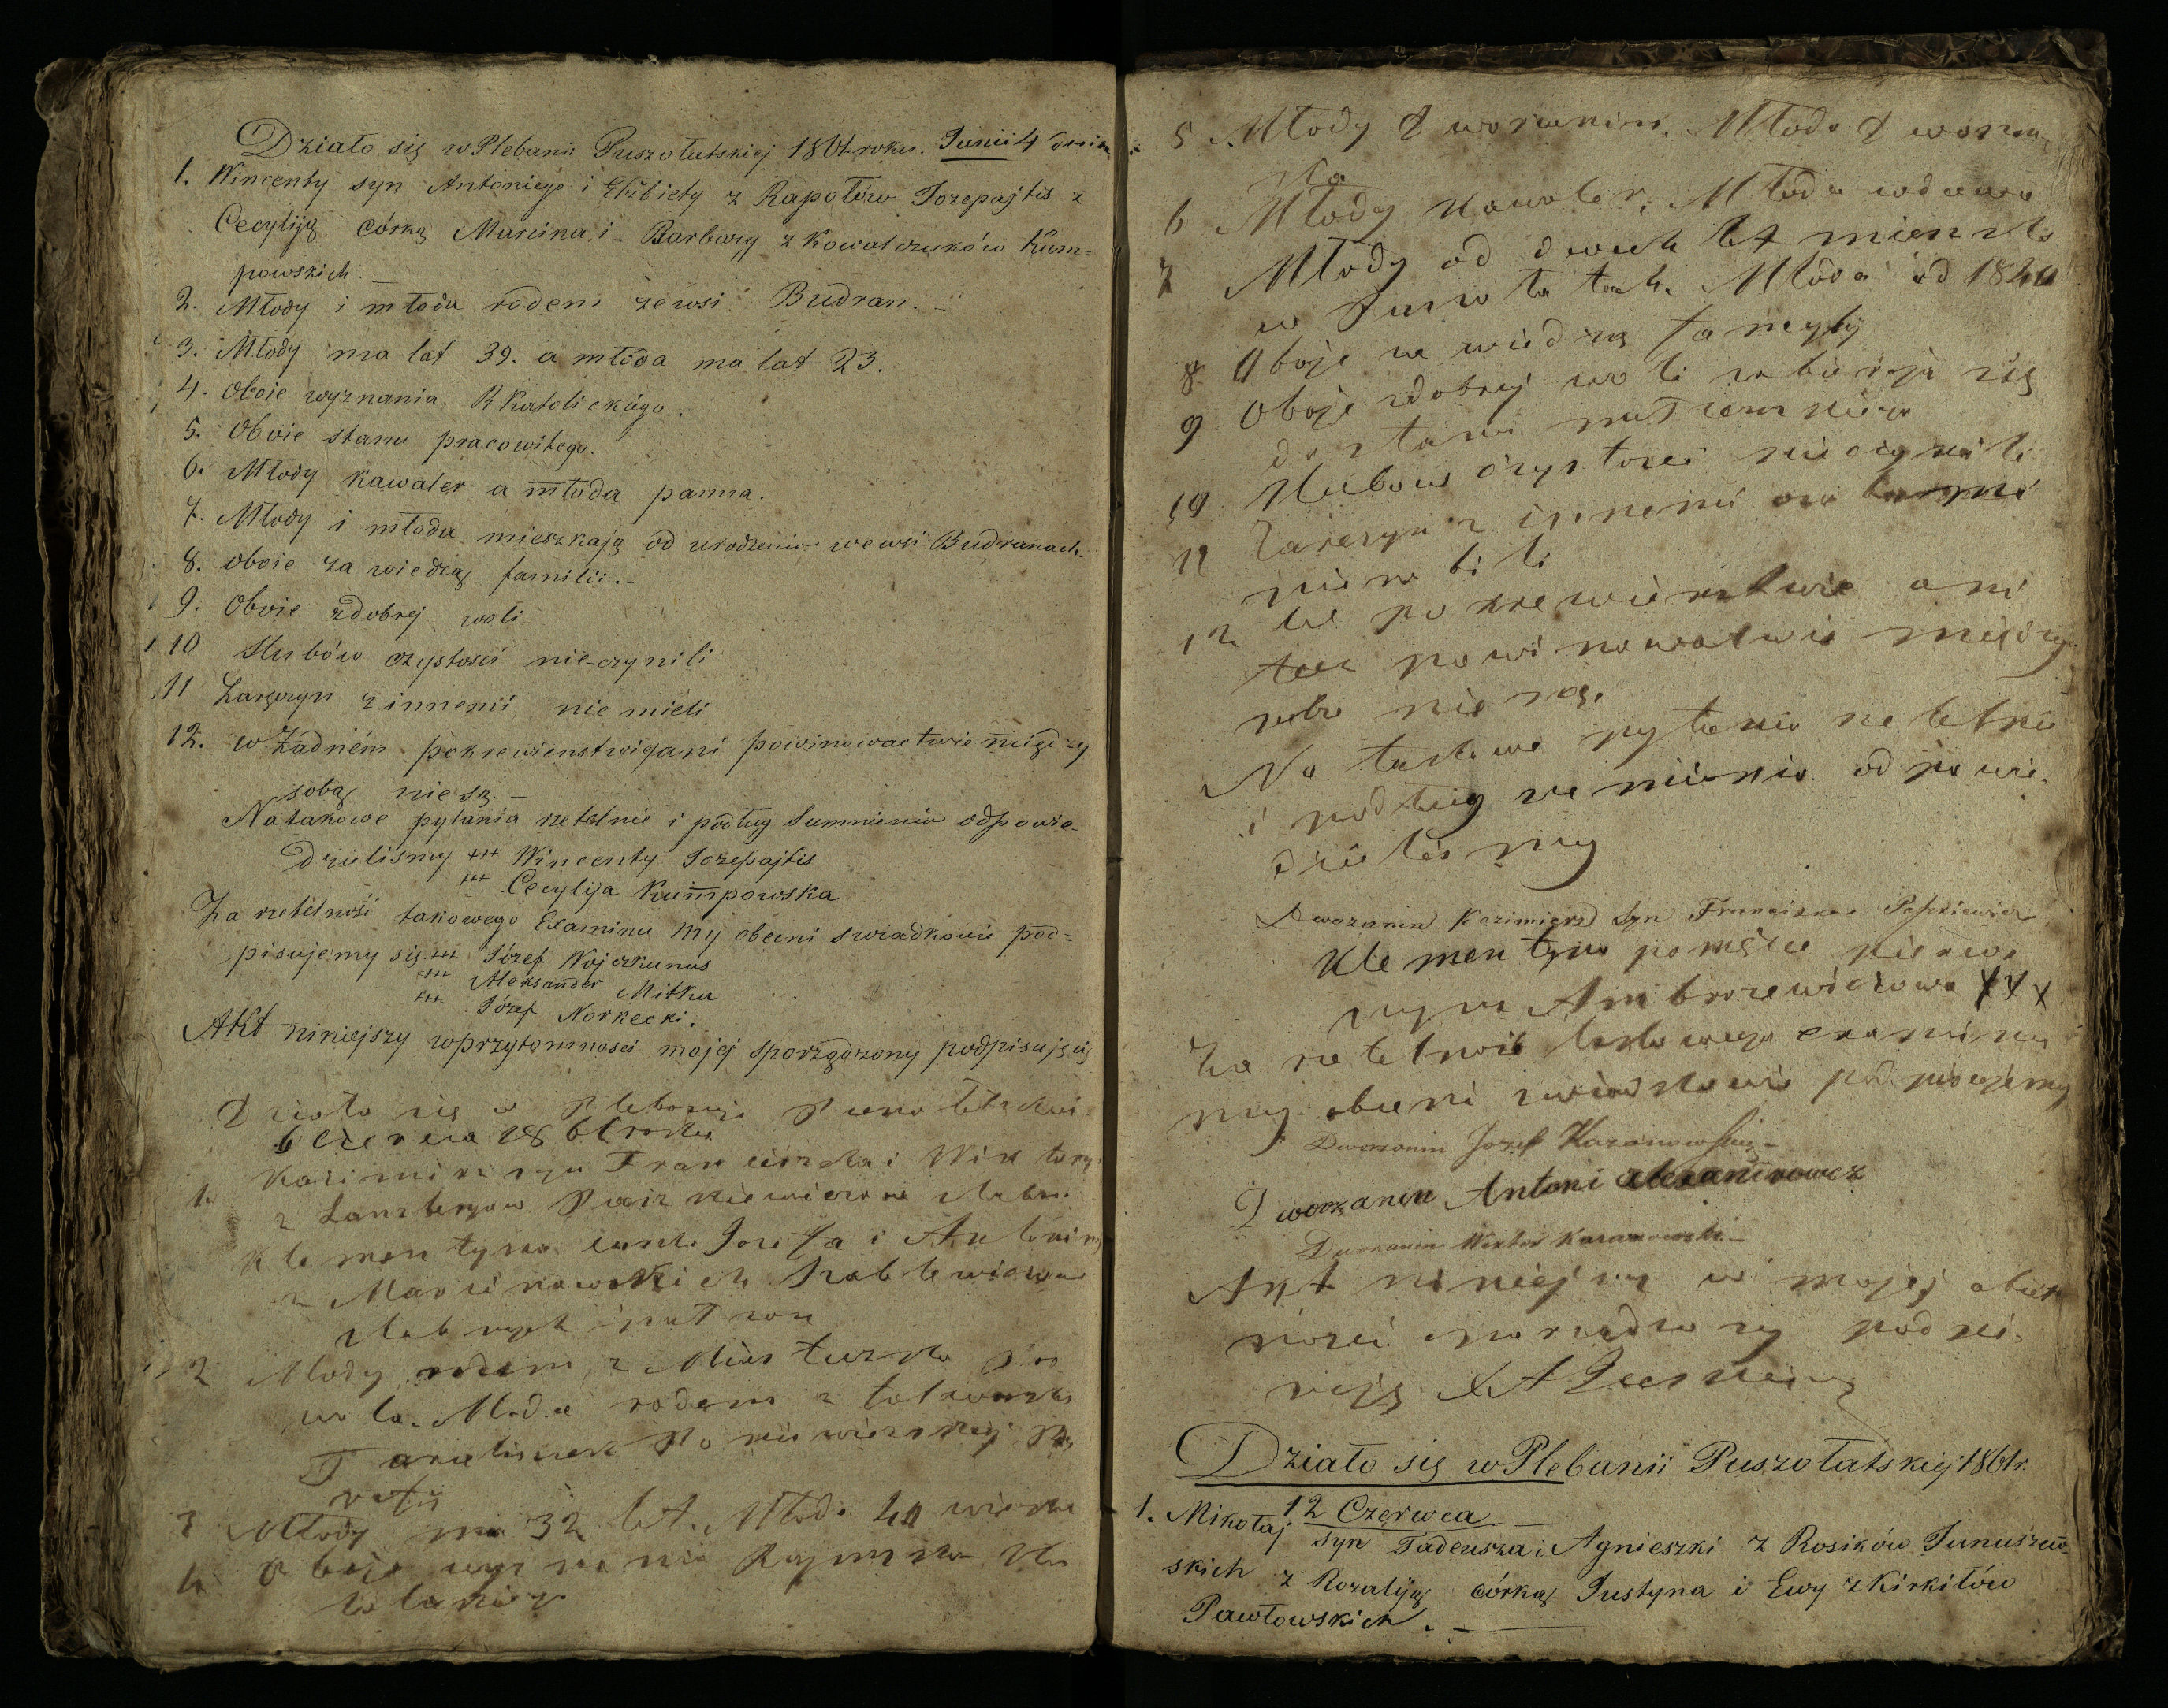 Działo się w Plebanii Puszołatskiej 1861 roku. Junii 4 dnia
1. Wincenty syn Antoniego i Elżbiety z Rapołów Jozepajtis z
Cecyliją córką Marcina i Barbary z Kowalczuków Kum=
powskich. –
2. Młody i młoda rodem ze wsi Budran. –
3. Młody ma lat 39. a młoda ma lat 23.
4. Oboie wyznania R Katolickiego.
5. Oboie stanu pracowitego.
6. Młody kawaler a młoda panna.
7. Młody i młoda mieszkają od urodzenia we wsi Budranach
8. oboie za wiedzą familii. –
9. Oboie z dobrej woli
10 Slubów czystosci nie czynili
11 Zaręczyn z innemi nie mieli
12. w Żadném pokrewienstwie ani powinowactwie między
sobą nie są. –
Na takowe pytania rzetelnie i podług Sumnienia odpowie-
dzielismy +++ Wincenty Jozepajtis
+++ Cecylija Kumpowska
Za rzetelność takowego Examinu my obecni swiadkowie pod=
pisujemy się +++ Józef Wojczkunas
+++ Aleksander Mitku
+++ Józef Norkecki.
Akt niniejszy w przytomnosci mojej sporządzony podpisuję
Działo się w Plebanji
6 Czerwca 1861 roku
1. Kazimierz syn Franciszka i Wiktoryi
z
Klementyna córka Józefa i Antoniny
z Marcinowskich
2 Młody rodem z
Młoda rodem z
3 Młody ma 32 lat. Młoda 40 wieku
4. Oboje wyznania Rzymsko Ka
tolickiego
5 Młody Dworzanin. Młoda Dworzan
ka
6 Młody Kawaler, Młoda wdowa
7 Młody od dwuch lat mieszka
w Młoda od 1840
8 Oboje za wiedzą familij
9 Oboje z dobrej woli zabierają się
do stanu małżenskiego
10 Slubow czystosci nie czynili
11 Zaręczyn z innemi
nie robili
12 W pokrewienstwie ani
też powinowactwie między
sobą nie są.
Na takowe pytania rzetelnie
i podług sumienia odpowie-
dzielismy
Dworzanin Kazimierz Syn Franciszka
Klementyna
Ambrozewiczowa XXX
Za rzetelność takowego examinu
my obecni swiadkowie podpisujemy
Dworzanin Jozef
Dworzanin Antoni
Dworzanin Wiktor
Akt niniejszy w mojej obec
nosci sporządzony podpi
suję
Działo się w Plebanii Puszołatskiej 1861 r.
12 Czerwca –
1. Mikołaj syn Tadeusza i Agnieszki z Rosików Januszew-
skich z Rozaliją córką Justyna i Ewy z Kirkiłów
Pawłowskich. –